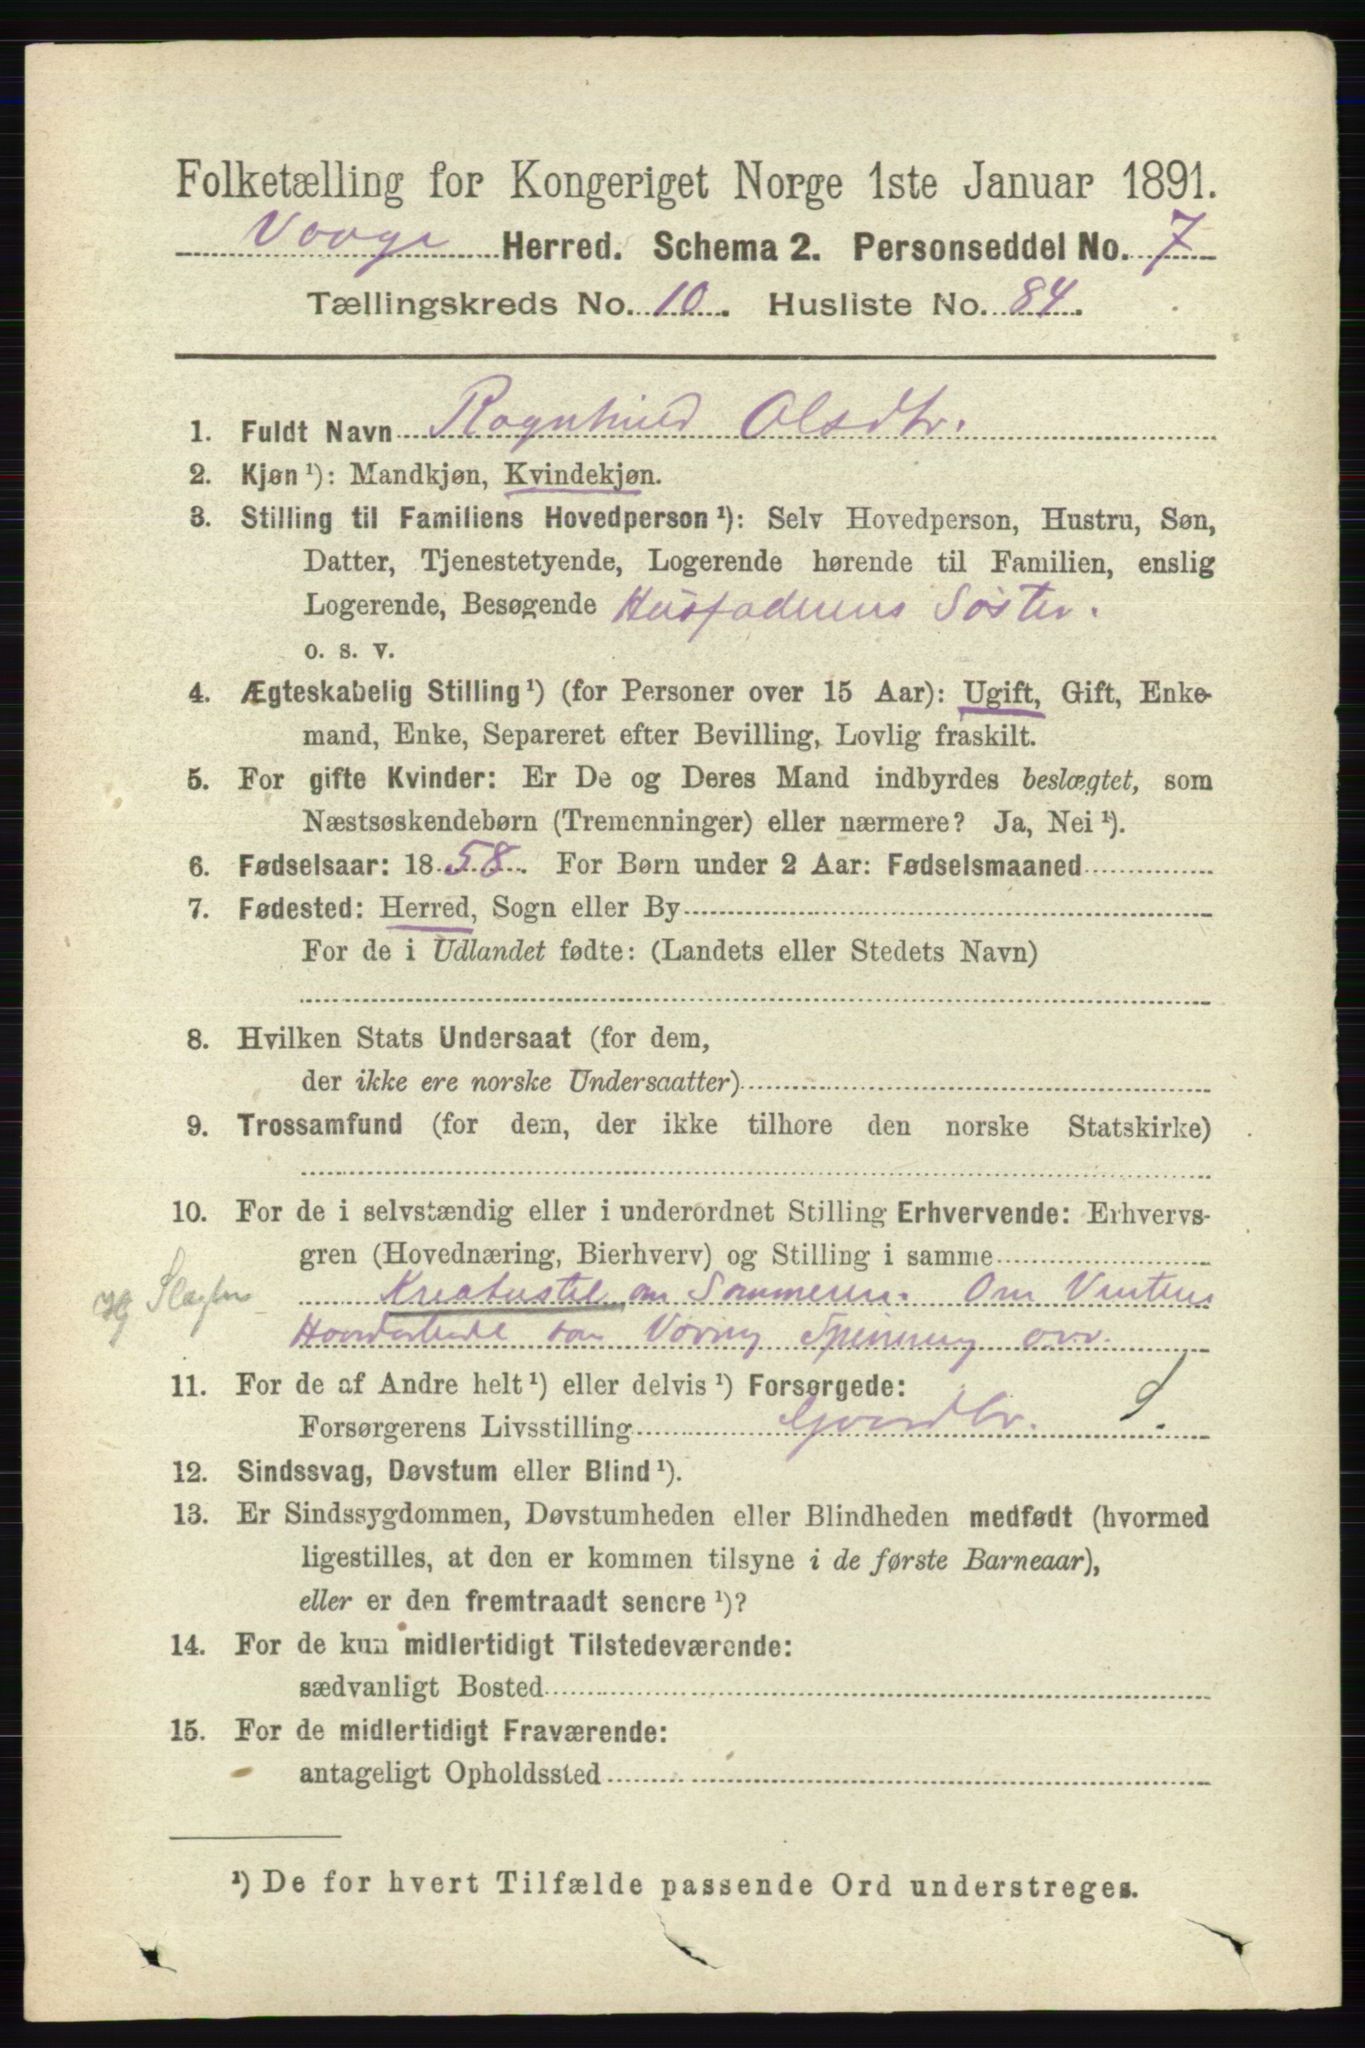 Folketælling for Kongeriget Norge 1ste Januar 1891.
Vaage Herred. Schema 2. Personseddel No. 7
Tællingskreds No. 10. Husliste No. 84.
1. Fuldt Navn Ragnhild Olsdtr.
2. Kjøn ¹): Mandkjøn, Kvindekjøn.
3. Stilling til Familiens Hovedperson ¹): Selv Hovedperson, Hustru, Søn,
Datter, Tjenestetyende, Logerende hørende til Familien, enslig
Logerende, Besøgende Husfaderens Søster.
o. s. v.
4. Ægteskabelig Stilling ¹) (for Personer over 15 Aar): Ugift, Gift, Enke-
mand, Enke, Separeret efter Bevilling, Lovlig fraskilt.
5. For gifte Kvinder: Er De og Deres Mand indbyrdes beslægtet, som
Næstsøskendebørn (Tremenninger) eller nærmere? Ja, Nei ¹).
6. Fødselsaar: 1858. For Børn under 2 Aar: Fødselsmaaned
7. Fødested: Herred, Sogn eller By
For de i Udlandet fødte: (Landets eller Stedets Navn)
8. Hvilken Stats Undersaat (for dem,
der ikke ere norske Undersaatter)
9. Trossamfund (for dem, der ikke tilhøre den norske Statskirke)
10. For de i selvstændig eller i underordnet Stilling Erhvervende: Erhvervs-
gren (Hovednæring, Bierhverv) og Stilling i samme
Kreaturstel om Sommeren. Om Vinteren
Haandarbeide som Vævning Spinning osv.
11. For de af Andre helt ¹) eller delvis ¹) Forsørgede:
Forsørgerens Livsstilling Gaardbr. S.
12. Sindssvag, Døvstum eller Blind ¹).
13. Er Sindssygdommen, Døvstumheden eller Blindheden medfødt (hvormed
ligestilles, at den er kommen tilsyne i de første Barneaar),
eller er den fremtraadt senere ¹)?
14. For de kun midlertidigt Tilstedeværende:
sædvanligt Bosted
15. For de midlertidigt Fraværende:
antageligt Opholdssted
¹) De for hvert Tilfælde passende Ord understreges.